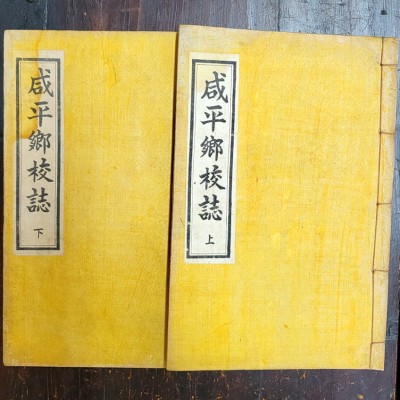 咸平鄉校誌 上
咸平鄉校誌 下